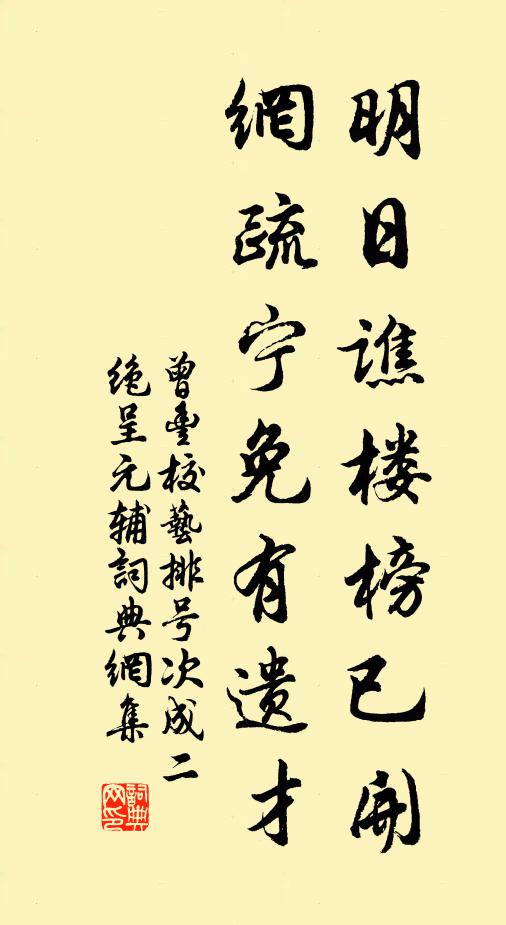 明日譙楼榜已開
網疏宁免有遗才
曾豊校藝排号次成二
绝呈元辅詞典網集
詞典网印